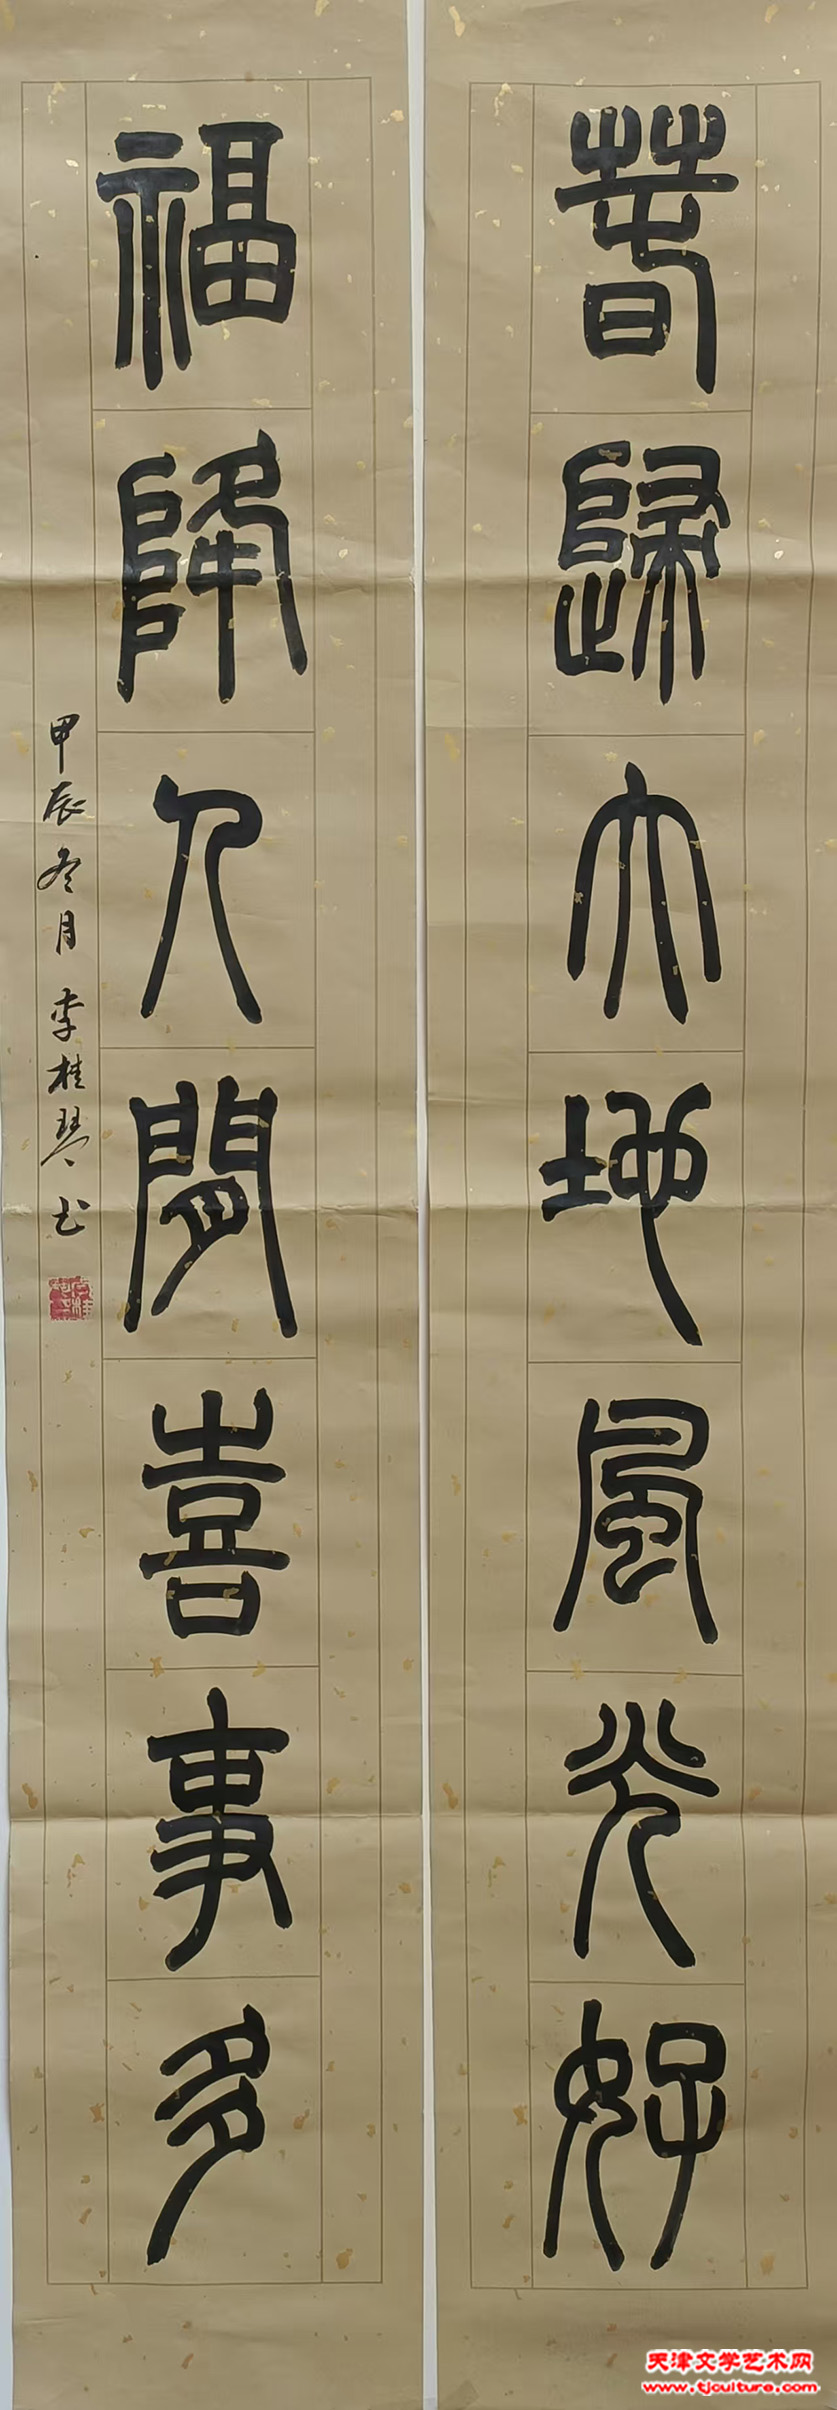 萅歸大地風光好
福降人間喜事多
甲辰冬月 李桂琴书
天津文学艺术网
www.tjculture.com